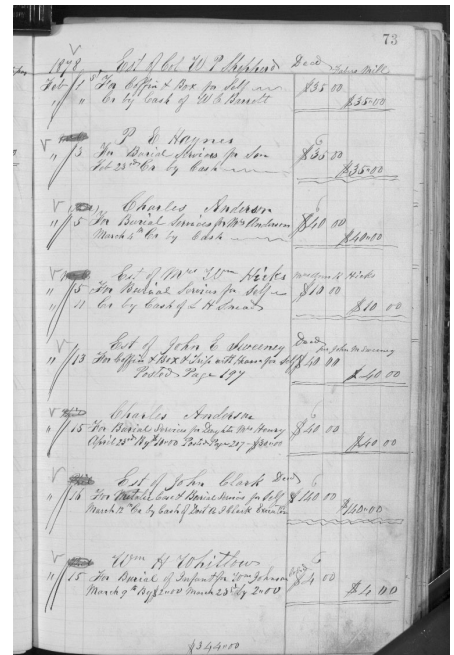 73
1878 Est of Col W P Shepherd Dead
Feb 1st For Coffin & Box for Self $35 00
" " Cr by Cash of W E Barrett $35.00
P E Haynes
" 3 For Burial Services for Son $35 00
Feb 23rd Cr by Cash $35.00
Charles Anderson
" 5 For Burial Services for Mrs Anderson $40 00
March 4th Cr by Cash $40.00
Est of Mrs Wm Hicks Mrs Hicks
" 5 For Burial Services for Self $10 00
" 11 Cr by Cash of L H $10 00
Est of John E Sweeney Dead
for John M Sweeney
" 13 For Coffin & Box & Trip with Hearse for Self $40 00
Posted Page 197 $40 00
Charles Anderson
" 15 For Burial Services for Daughter Mrs Henry $40 00
April 23rd By $10.00 Posted Page 217 - $30.00 $40 00
Est of John Clark Dead
" 16 For Case & Burial Services for Self $140 00
March 12 Cr by Cash of & J Clark Executor $140.00
Wm H Whitlow
" 15 For Burial of Infant for Wm Johnson $4 00
March 9th By $2.00 March 23rd by 2.00 $4 00
$344.00